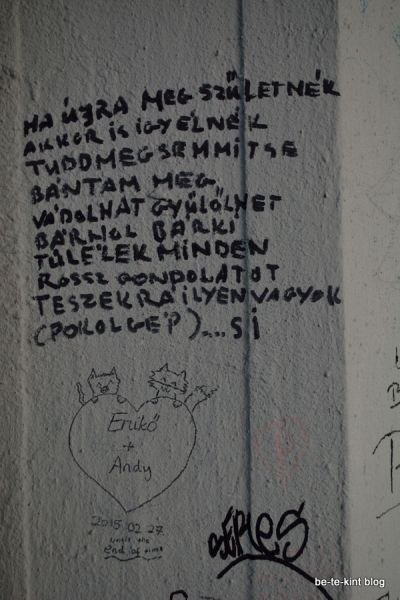 HA ÚJRA MEG SZŰLETNÉK
AKKOR IS IGY ÉLNÉK
TUDD MEG SEMMIT SE
BÁNTAM MEG
VÁDOLHAT GYŰLÖLHET
BÁRHOL BÁRKI
TÚLÉLEK MINDEN
ROSSZ GONDOLATOT
TESZEK RÁ ILYEN VAGYOK
(POKOLGÉP)...SÍ
Enikő
+
Andy
2015.02.27
until the
end of time
be-te-kint blog